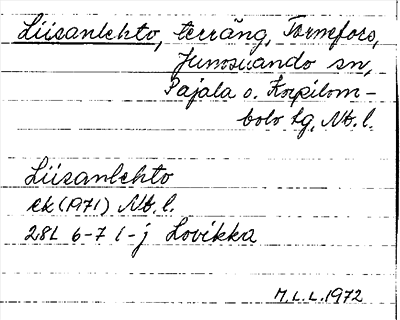 Liisanlehto, terräng, Tärnefors,
Junosuando sn,
Pajala o. Korpilom-
bolo tg, Nb. l.
Liisanlehto
ek (1971) Nb. l.
28L 6-7 i-j Lovikka
M.L.L. 1972